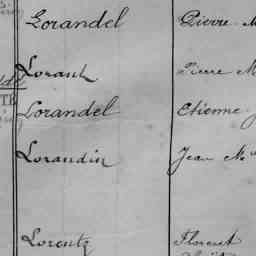 Lorandel Pierre M
Lorant Pierre M
Lorandel Etienne J
Lorandin Jean M
Lorentz Florent